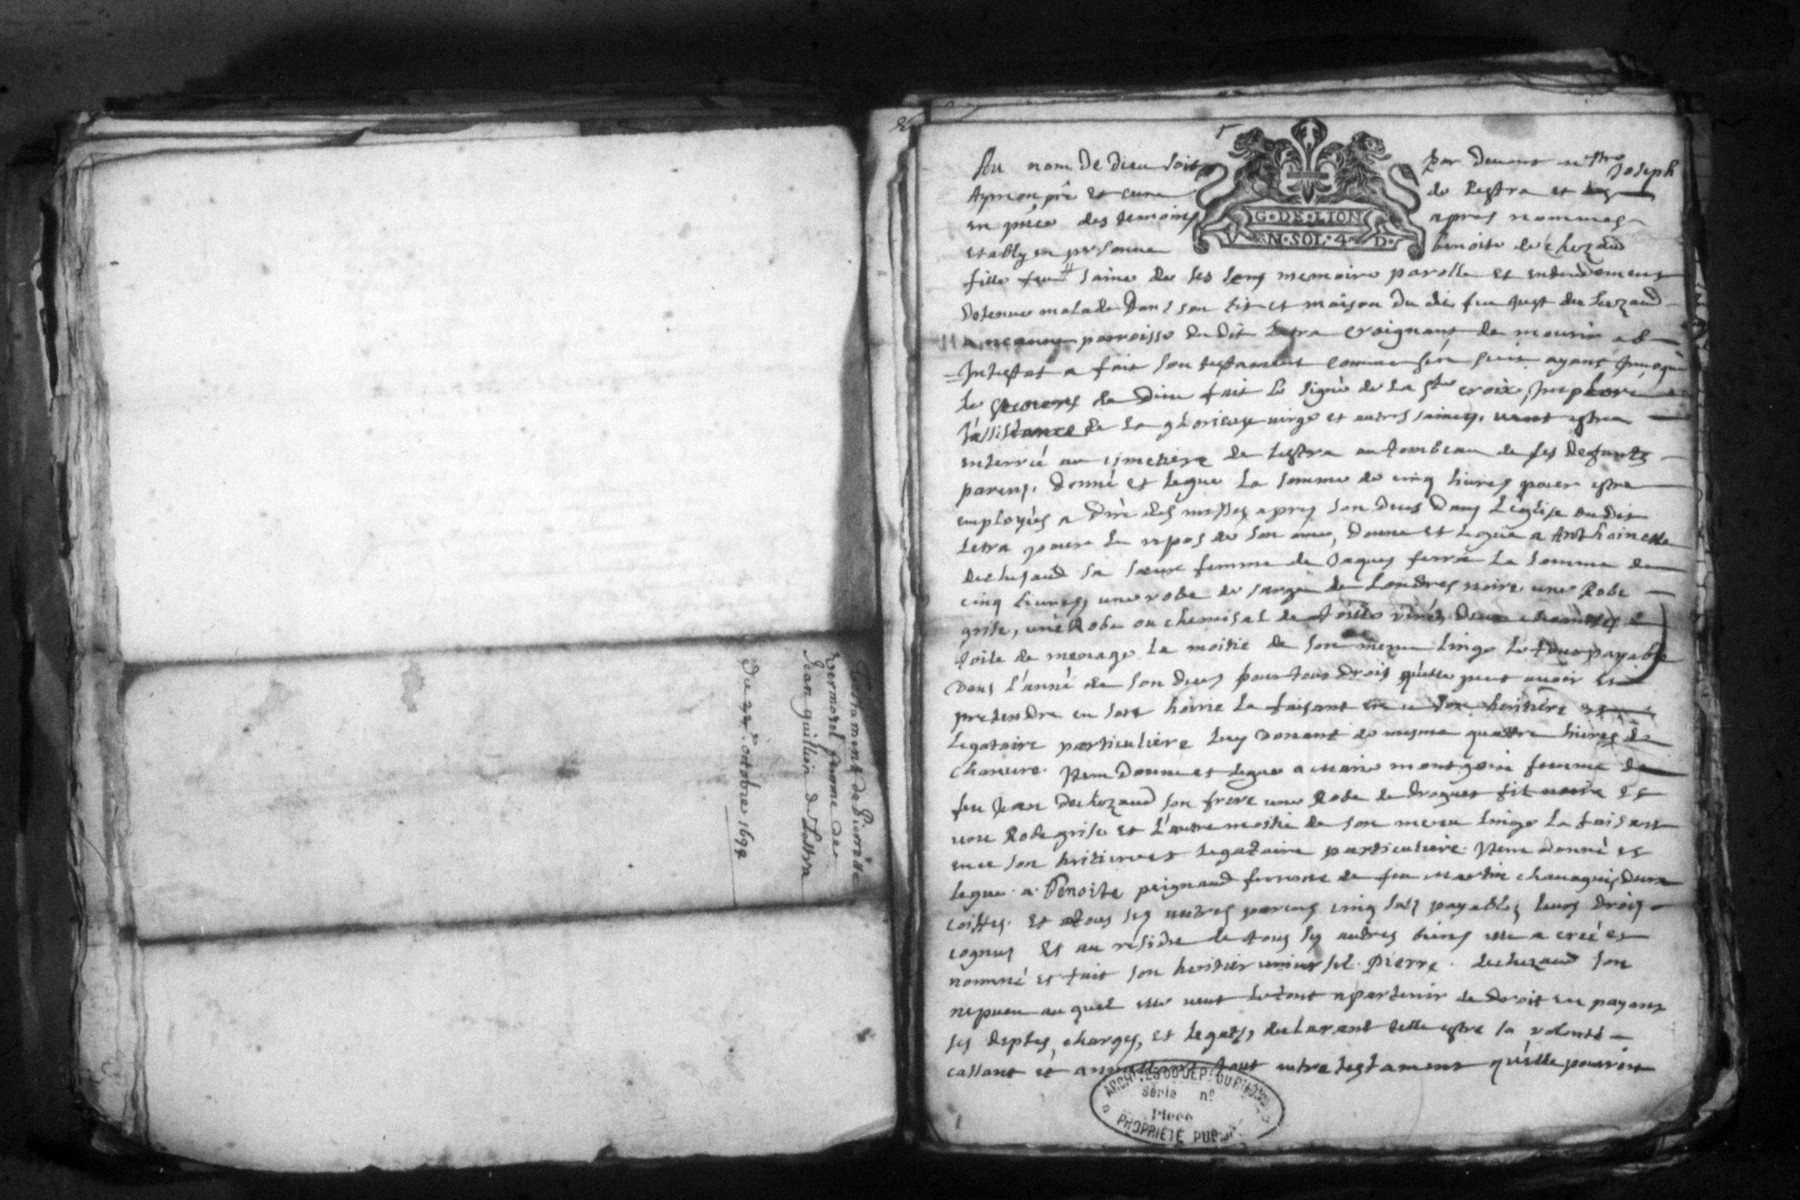 Testament de Pierrette
Vermorel femme de
Jean guillin de Lestra
Du 22e octobre 1694
Au nom de dieu soit par devant ntre Joseph
Aymon ptre et cure de Lestra et
en pnce des temoins apres nommes
G·DE·LION
V N·SOL·4·D·
establye en personne benoite dechuzaud
fille saine de ses sens memoire parolle et entendement
Detenue malade Dans son lit et maison du dit feu dechuzaud
parroisse du dit Letra craignant de mourir ab
Intestat a fait son testament comme sen suit ayant Invoqué
le secours de Dieu fait le signe de la Ste croix, Imploré
l'assistance de la glorieuse vierge et autres saincts, veut estre
enterrée au cimetiere de Lestra au tombeau de ses deffunts
parens, donne et legue la somme de cinq livres pour estre
employées a dire des messes apres son deces dans L'eglise du dit
Letra pour le repos de son ame, donne et legue a Anthoinette
dechuzaud sa sœur femme de Jaques ferra la somme de
cinq livres, une robe de sarge de Londres noire une Robe
grise, une Robe ou chemisal de toille deux
toile de menage la moitie de son menu linge le tout payable
dans l'anné de son deces pour tous droits qu'elle peut avoir et
pretendre en son hoirie la faisant en ce son heritiere et
legataire particuliere luy donant de mesme quattre livres de
chanvre. Item donne et legue a Marie montgoin femme de
feu Jean dechuzaud son frere une Robe de droguet fil noire et
une Robe grise et l'autre moitié de son menu linge la faisant
en ce son heritiere et legataire particuliere. Item donne et
legue a Benoite peignaud femme de feu Martin deux
coiffes. Et a tous ses autres parens cinq sols payables leurs droits
cognus Et au residu de tous ses autres biens elle a creé et
nommé et fait son heritier universel Pierre dechuzaud son
nepveu au quel elle veut le tout apartenir de droit en payant
ses deptes, charges, et legats, declarant telle estre sa volonté
cassant et annullant tout autre testament qu'elle pourroit
ARCHIVES DU DEPT DU RHONE
Série n°
Pièce
PROPRIETE PUBL